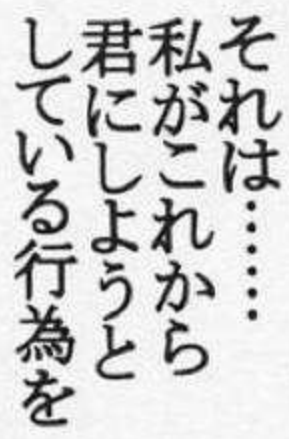 それは……
私がこれから
君にしようと
している行為を